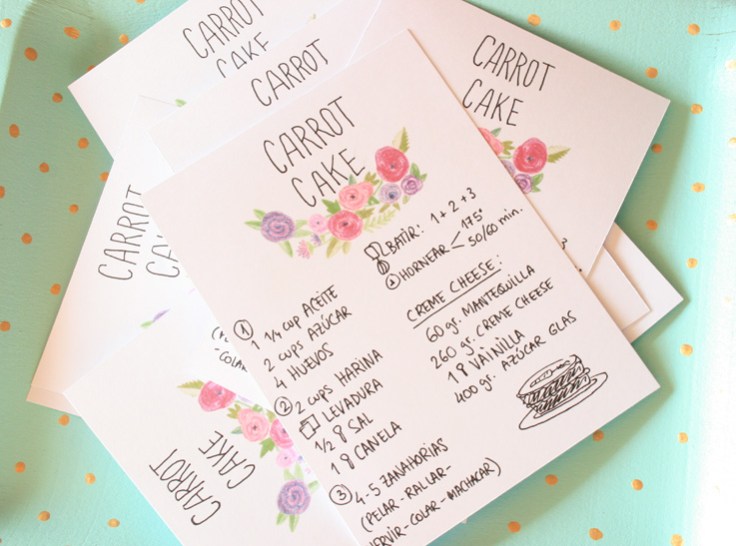 CARROT
CAKE
CARROT
CARROT
CAKE
CARROT
CARROT
CAKE
CARROT
CAKE
BATIR: 1+2+3
HORNEAR 175°
50/60 min.
①
1 1/4 cup ACEITE
2 cups AZÚCAR
4 HUEVOS
② 2 cups HARINA
LEVADURA
1/2 SAL
1 CANELA
③ 4-5 ZANAHORIAS
(PELAR-RALLAR-
HERVIR-COLAR-MACHACAR)
CREME CHEESE:
60 gr. MANTEQUILLA
260 gr. CREME CHEESE
1 VAINILLA
400 gr. AZÚCAR GLAS